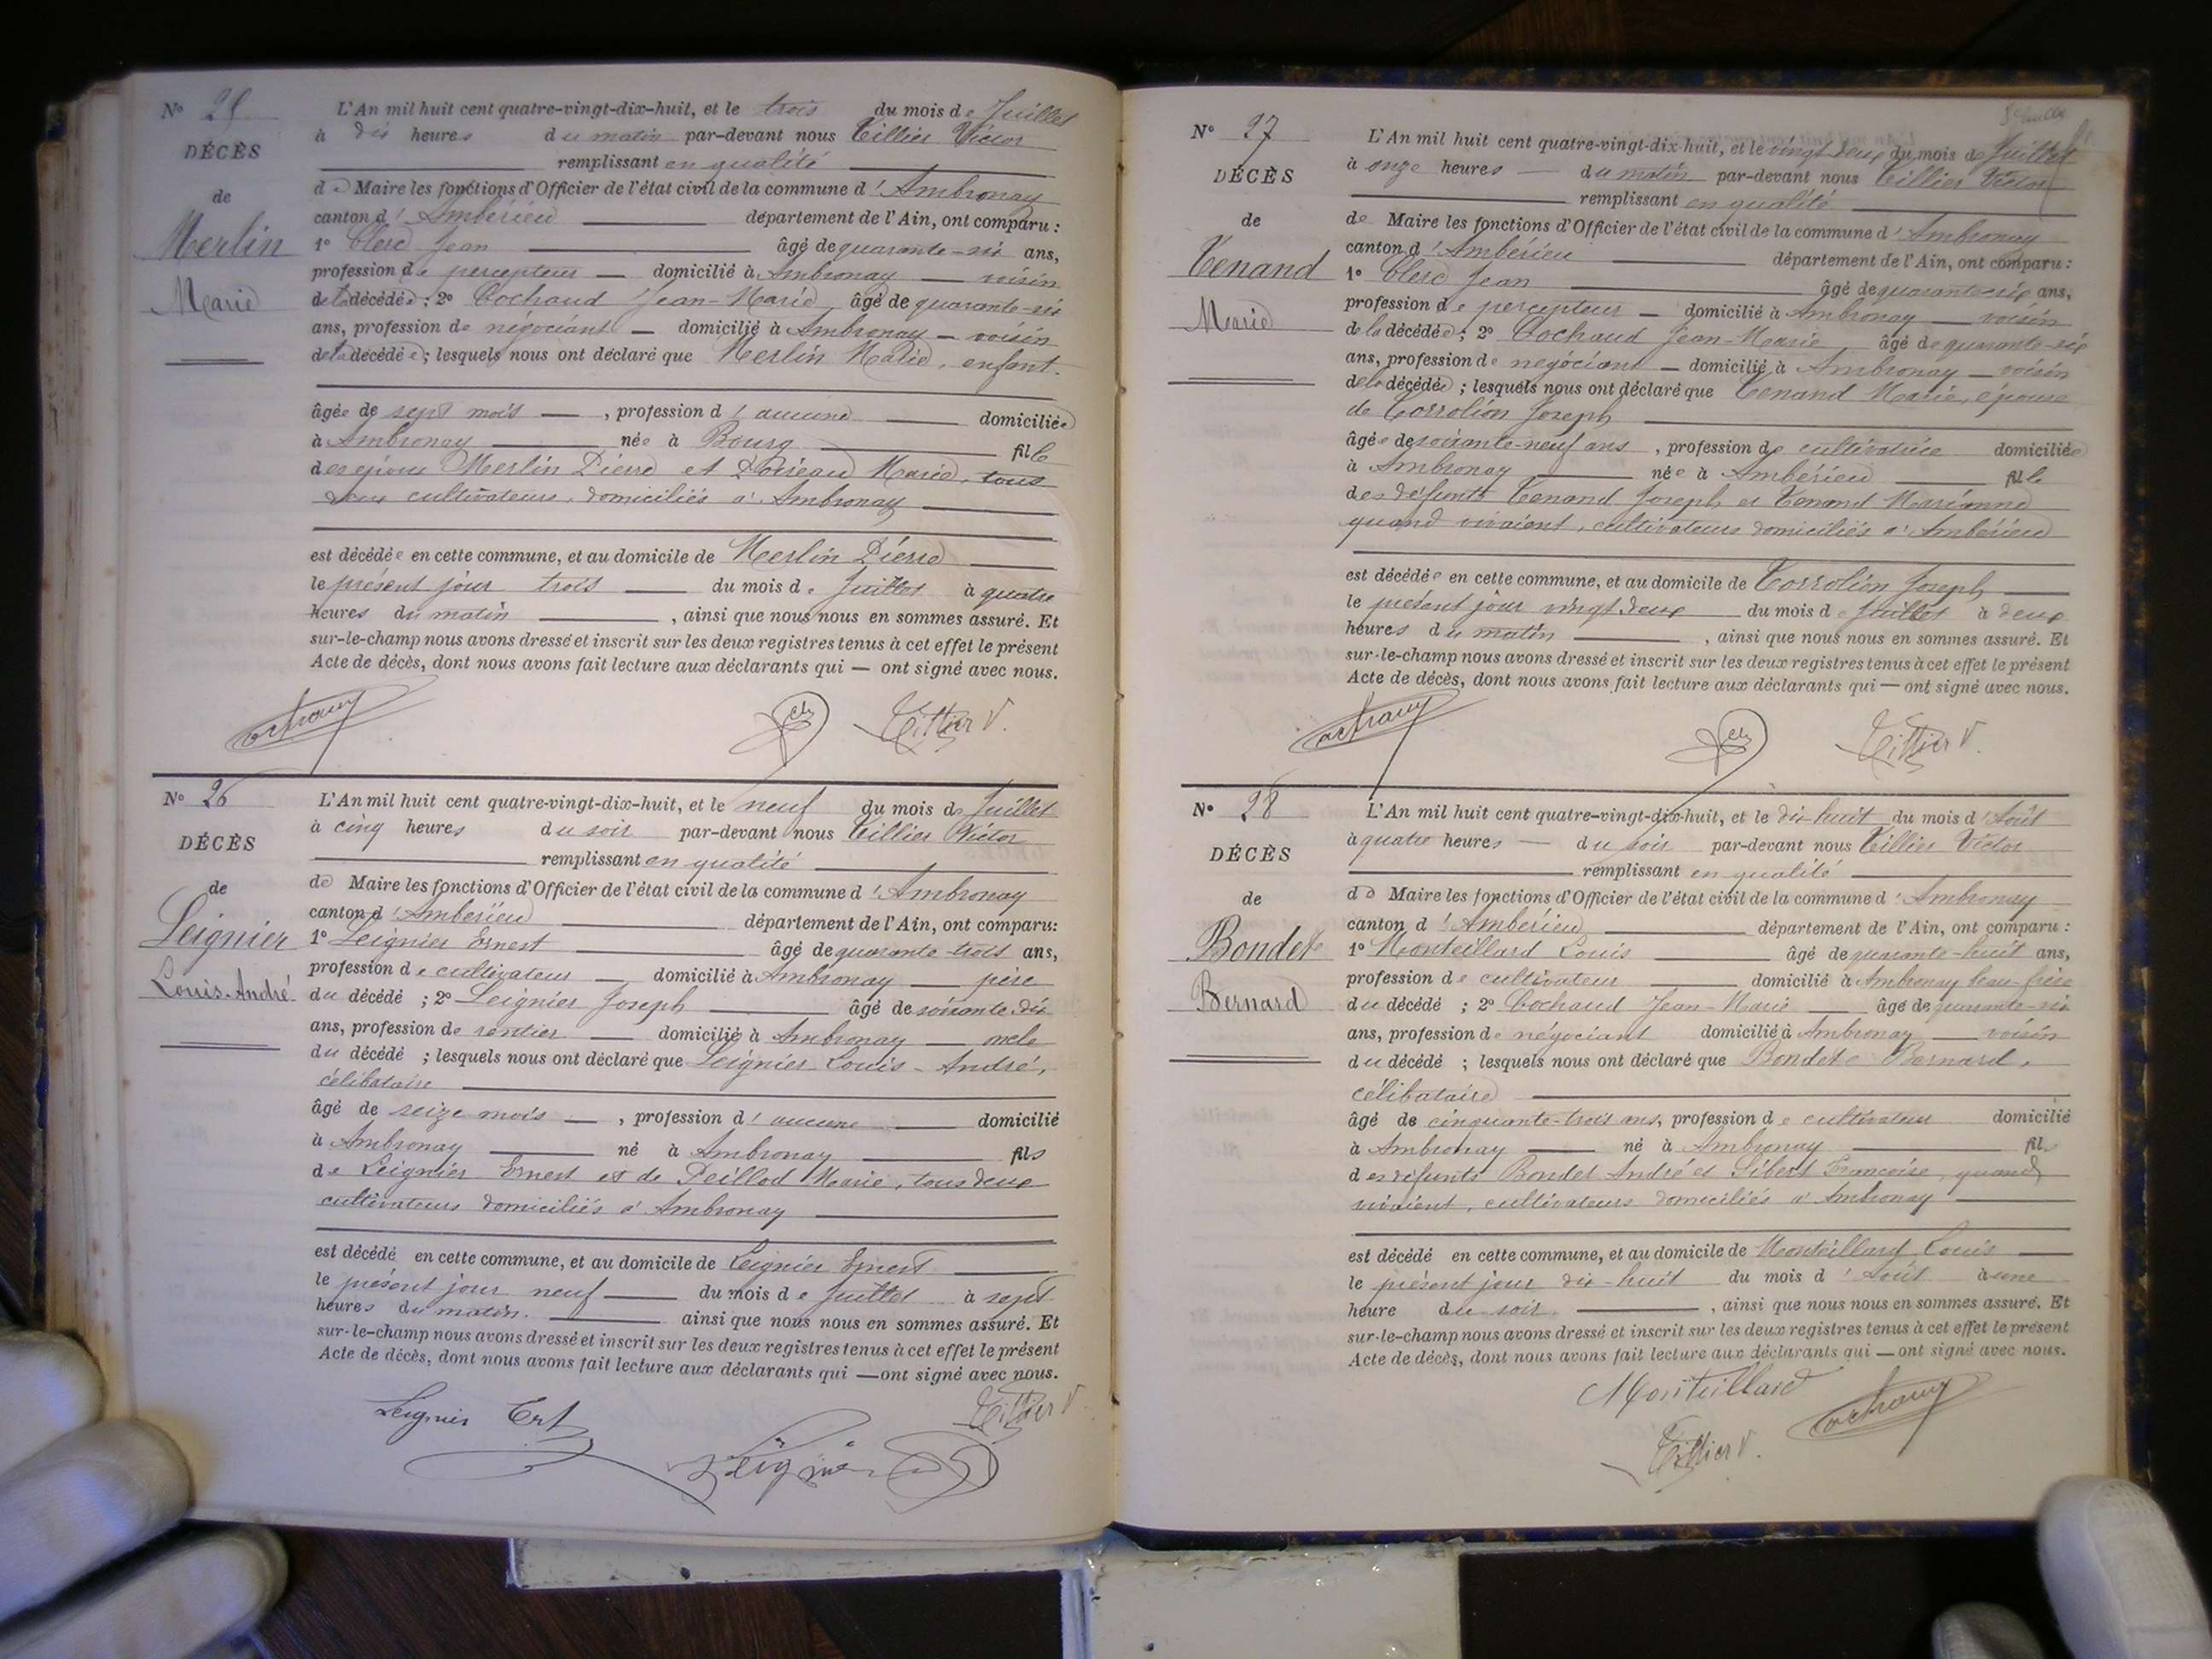 N° 25
DÉCÈS
de
Merlin
Marie
L'An mil huit cent quatre-vingt-dix-huit, et le trois du mois de Juillet
à dix heures du matin par-devant nous Tillier Victor
remplissant en qualité
de Maire les fonctions d'Officier de l'état civil de la commune d'Ambronay
canton d'Ambérieu département de l'Ain, ont comparu :
1° Clerc Jean âgé de quarante-six ans,
profession de percepteur — domicilié à Ambronay — voisin
de la décédée ; 2° Cochaud Jean-Marie âgé de quarante-six
ans, profession de négociant — domicilié à Ambronay — voisin
de la décédée ; lesquels nous ont déclaré que Merlin Marie, enfant.
âgée de sept mois — , profession d'aucune domiciliée
à Ambronay née à Bourg fille
des époux Merlin Pierre et Marie, tous
deux cultivateurs, domiciliés à Ambronay
est décédée en cette commune, et au domicile de Merlin Pierre
le présent jour trois du mois de Juillet à quatre
heures du matin , ainsi que nous nous en sommes assuré. Et
sur-le-champ nous avons dressé et inscrit sur les deux registres tenus à cet effet le présent
Acte de décès, dont nous avons fait lecture aux déclarants qui — ont signé avec nous.
Tillier V.
N° 26
DÉCÈS
de
Leignier
Louis-André
L'An mil huit cent quatre-vingt-dix-huit, et le neuf du mois de Juillet
à cinq heures du soir par-devant nous Tillier Victor
remplissant en qualité
de Maire les fonctions d'Officier de l'état civil de la commune d'Ambronay
canton d'Ambérieu département de l'Ain, ont comparu:
1° Leignier Ernest âgé de quarante-trois ans,
profession de cultivateur — domicilié à Ambronay — père
du décédé ; 2° Leignier Joseph âgé de soixante dix
ans, profession de rentier — domicilié à Ambronay — oncle
du décédé ; lesquels nous ont déclaré que Leignier Louis-André,
célibataire
âgé de seize mois — , profession d'aucune domicilié
à Ambronay né à Ambronay fils
de Leignier Ernest et de Peillod Marie, tous deux
cultivateurs domiciliés à Ambronay
est décédé en cette commune, et au domicile de Leignier Ernest
le présent jour neuf du mois de Juillet à sept
heures du matin. ainsi que nous nous en sommes assuré. Et
sur-le-champ nous avons dressé et inscrit sur les deux registres tenus à cet effet le présent
Acte de décès, dont nous avons fait lecture aux déclarants qui — ont signé avec nous.
Leignier Ert
Tillier V
Leignier
N° 27
DÉCÈS
de
Tenand
Marie
L'An mil huit cent quatre-vingt-dix-huit, et le vingt deux du mois de Juillet
à onze heures — du matin par-devant nous Tillier Victor
remplissant en qualité
de Maire les fonctions d'Officier de l'état civil de la commune d'Ambronay
canton d'Ambérieu département de l'Ain, ont comparu :
1° Clerc Jean âgé de quarante-six ans,
profession de percepteur — domicilié à Ambronay — voisin
de la décédée ; 2° Cochaud Jean-Marie âgé de quarante-six
ans, profession de négociant — domicilié à Ambronay — voisin
de la décédée ; lesquels nous ont déclaré que Tenand Marie, épouse
de Joseph
âgée de soixante-neuf ans , profession de cultivatrice domiciliée
à Ambronay née à Ambérieu fille
des défunts Tenand Joseph et Tenand Marianne
quand vivaient, cultivateurs domiciliés à Ambérieu
est décédée en cette commune, et au domicile de Joseph
le présent jour vingt deux du mois de Juillet à deux
heures du matin , ainsi que nous nous en sommes assuré. Et
sur-le-champ nous avons dressé et inscrit sur les deux registres tenus à cet effet le présent
Acte de décès, dont nous avons fait lecture aux déclarants qui — ont signé avec nous.
Tillier V.
N° 28
DÉCÈS
de
Bondet
Bernard
L'An mil huit cent quatre-vingt-dix-huit, et le dix huit du mois d'Août
à quatre heures — du soir par-devant nous Tillier Victor
remplissant en qualité
de Maire les fonctions d'Officier de l'état civil de la commune d'Ambronay
canton d'Ambérieu département de l'Ain, ont comparu :
1° Monteillard Louis âgé de quarante-huit ans,
profession de cultivateur domicilié à Ambronay beau-frère
du décédé ; 2° Cochaud Jean-Marie âgé de quarante-six
ans, profession de négociant domicilié à Ambronay voisin
du décédé ; lesquels nous ont déclaré que Bondet Bernard,
célibataire
âgé de cinquante-trois ans, profession de cultivateur domicilié
à Ambronay né à Ambronay fils
des défunts Bondet André et Sibert Françoise, quand
vivaient, cultivateurs domiciliés à Ambronay
est décédé en cette commune, et au domicile de Monteillard Louis
le présent jour dix-huit du mois d'Août à une
heure du soir. , ainsi que nous nous en sommes assuré. Et
sur-le-champ nous avons dressé et inscrit sur les deux registres tenus à cet effet le présent
Acte de décès, dont nous avons fait lecture aux déclarants qui — ont signé avec nous.
Monteillard
Tillier V.